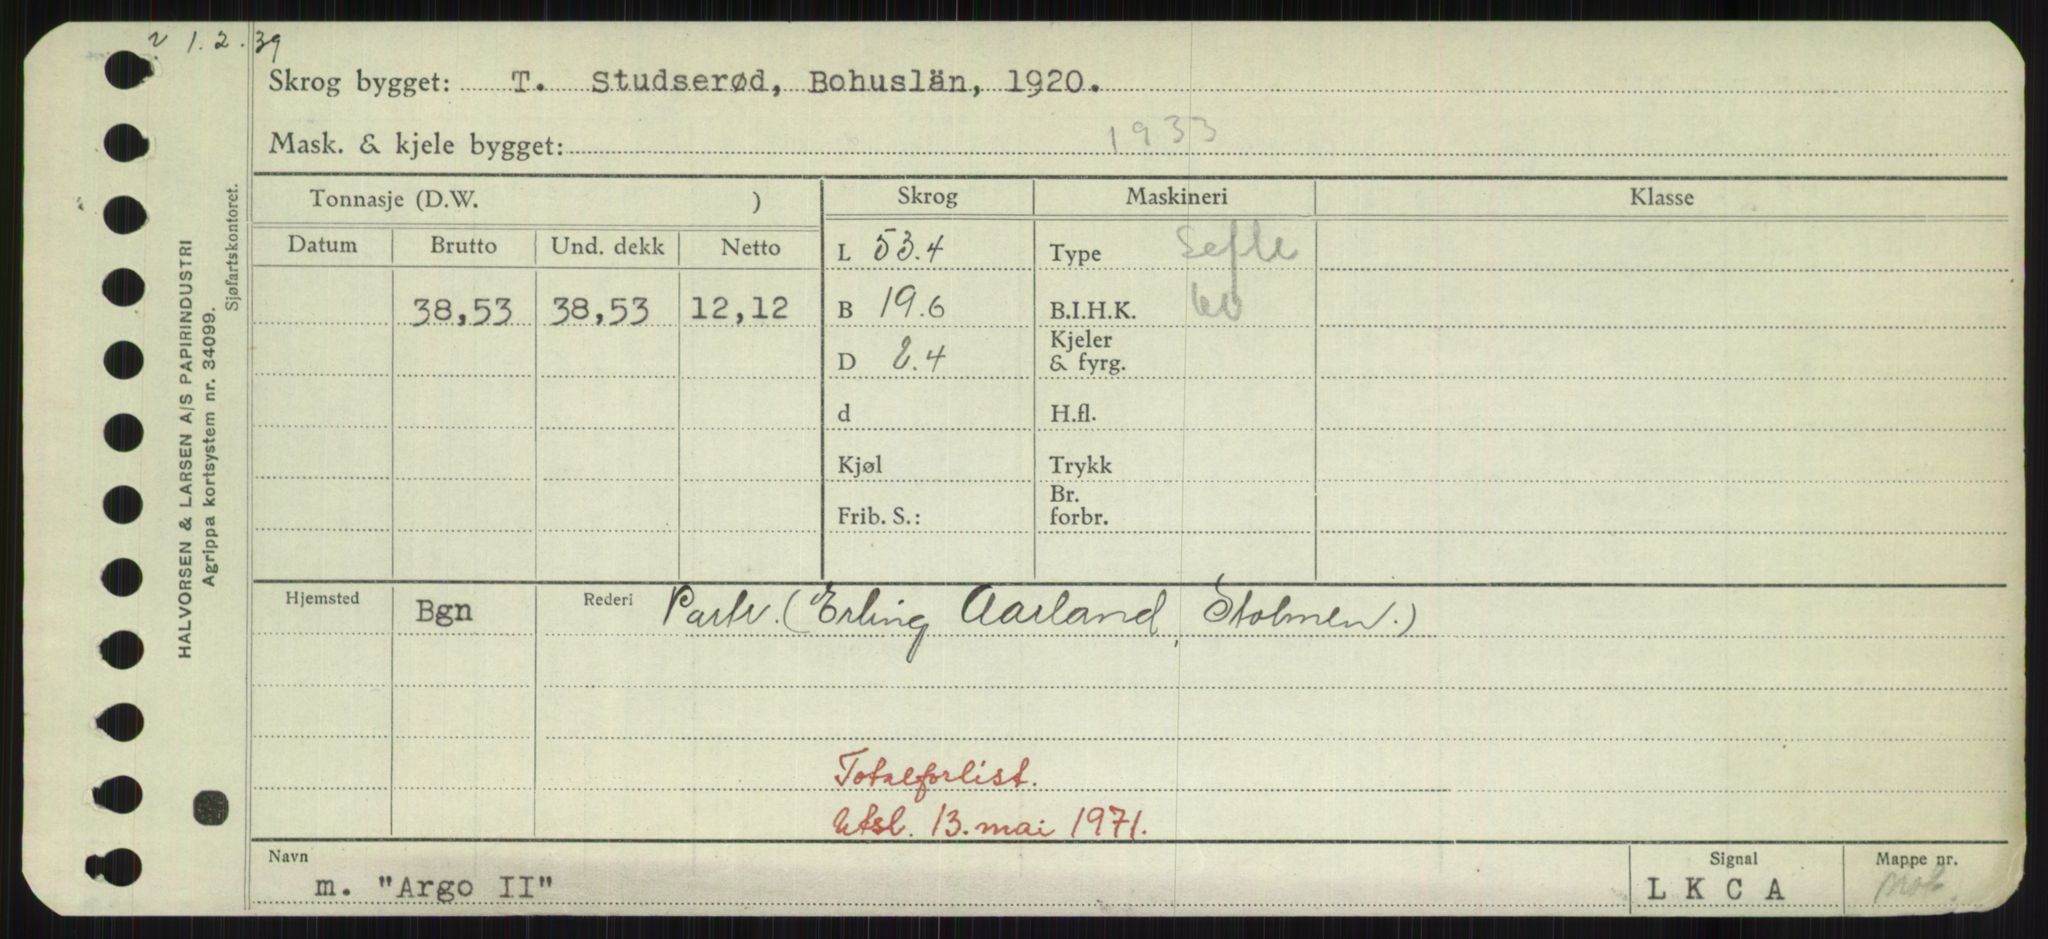 1.2.39
Skrog bygget: T. Studserød, Bohuslän, 1920.
Mask. & kjele bygget: 1933
Tonnasje (D.W. ) Skrog Maskineri Klasse
Datum Brutto Und. dekk Netto
L 53.4 Type
38,53 38,53 12,12 B 19.6 B.I.H.K. 60
D 8.4 Kjeler & fyrg.
d H.fl.
Kjøl Trykk
Frib. S.: Br. forbr.
Hjemsted Bgn Rederi Partr. (Erling Aarland, Stolmen.)
Totalforlist.
Utsl. 13. mai 1971.
Navn Signal Mappe nr.
m. "Argo II" L K C A Mot.
HALVORSEN & LARSEN A/S PAPIRINDUSTRI
Agrippa kortsystem nr. 34099.
Sjøfartskontoret.